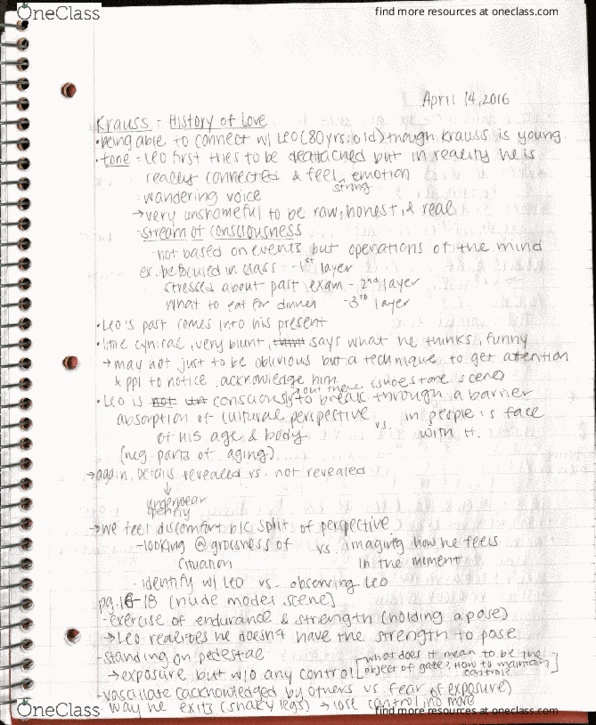 OneClass
find more resources at oneclass.com
April 14, 2016
Krauss - History of Love
• being able to connect w/ Leo (80 yrs. old) though Krauss is young
• tone - Leo first tries to be deattached but in reality he is
really connected & feel emotion
strong
- wandering voice
→ very unshameful to be raw, honest, & real
- stream of consciousness
- not based on events but operations of the mind
ex. be focused in class - 1st layer
stressed about past exam - 2nd layer
what to eat for dinner - 3rd layer
• Leo's past comes into his present
• little cynical, very blunt, says what he thinks, funny
→ may not just to be oblivious but a technique to get attention
& ppl to notice, acknowledge him
out there (shoe store scene)
• Leo is consciously to break through a barrier
absorption of cultural perspective vs. in people's face
of his age & body with it.
(neg. parts of aging)
→ again. Details revealed vs. not revealed
↓
→ we feel discomfort b/c split of perspective
- looking @ grossness of vs imaging how he feels
situation in the moment
- identify w/ Leo vs. observing Leo
pg. 16-18 (nude model scene)
- exercise of endurance & strength (holding a pose)
→ Leo realizes he doesn't have the strength to pose
- standing on pedestal
→ exposure but w/o any control [what does it mean to be the
object of gaze? How to maintain
control]
- vascillate (acknowledged by others vs fear of exposure)
- way he exits (shaky legs) → lost control no more
OneClass
find more resources at oneclass.com